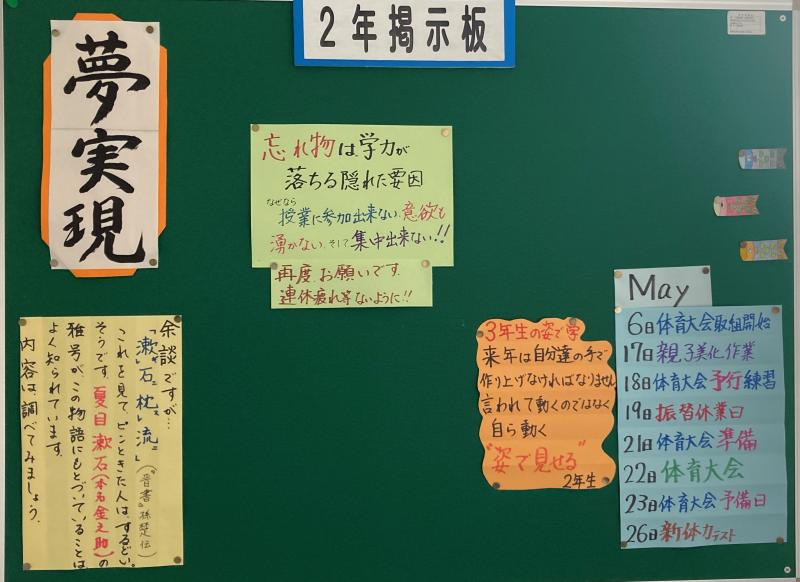 2年掲示板
夢実現
忘れ物は学力が
落ちる隠れた要因
なぜなら
授業に参加出来ない、意欲も
湧かない、そして集中出来ない!!
再度、お願いです。
連休疲れ等ないように!!
余談ですが…
「漱石枕流」(『晋書』孫楚伝)
これを見て、ピンときた人は、するどい。
そうです。夏目漱石(本名金之助)の
雅号がこの物語にもとづいていることは
よく知られています。
内容は、調べてみましょう。
3年生の姿で学
来年は自分達の手で
作り上げなければなりません
言われて動くのではなく
自ら動く
"姿で見せる"
2年生
May
6日体育大会取組開始
17日親子美化作業
18日体育大会予行練習
19日振替休業日
21日体育大会準備
22日体育大会
23日体育大会予備日
26日新体力テスト